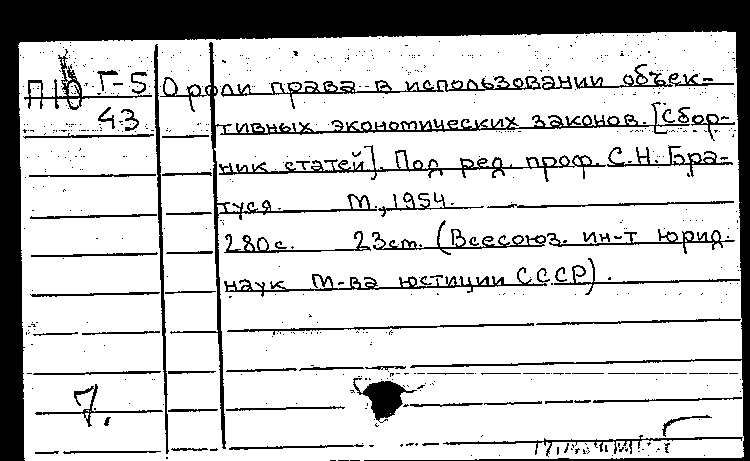 П10 Г-5 О роли права в использовании объек-
43 тивных экономических законов. [Сбор-
ник статей]. Под ред. проф. С.Н. Бра-
туся. М., 1954.
280с. 23см. (Всесоюз. ин-т юрид.
наук М-ва юстиции СССР).
7.